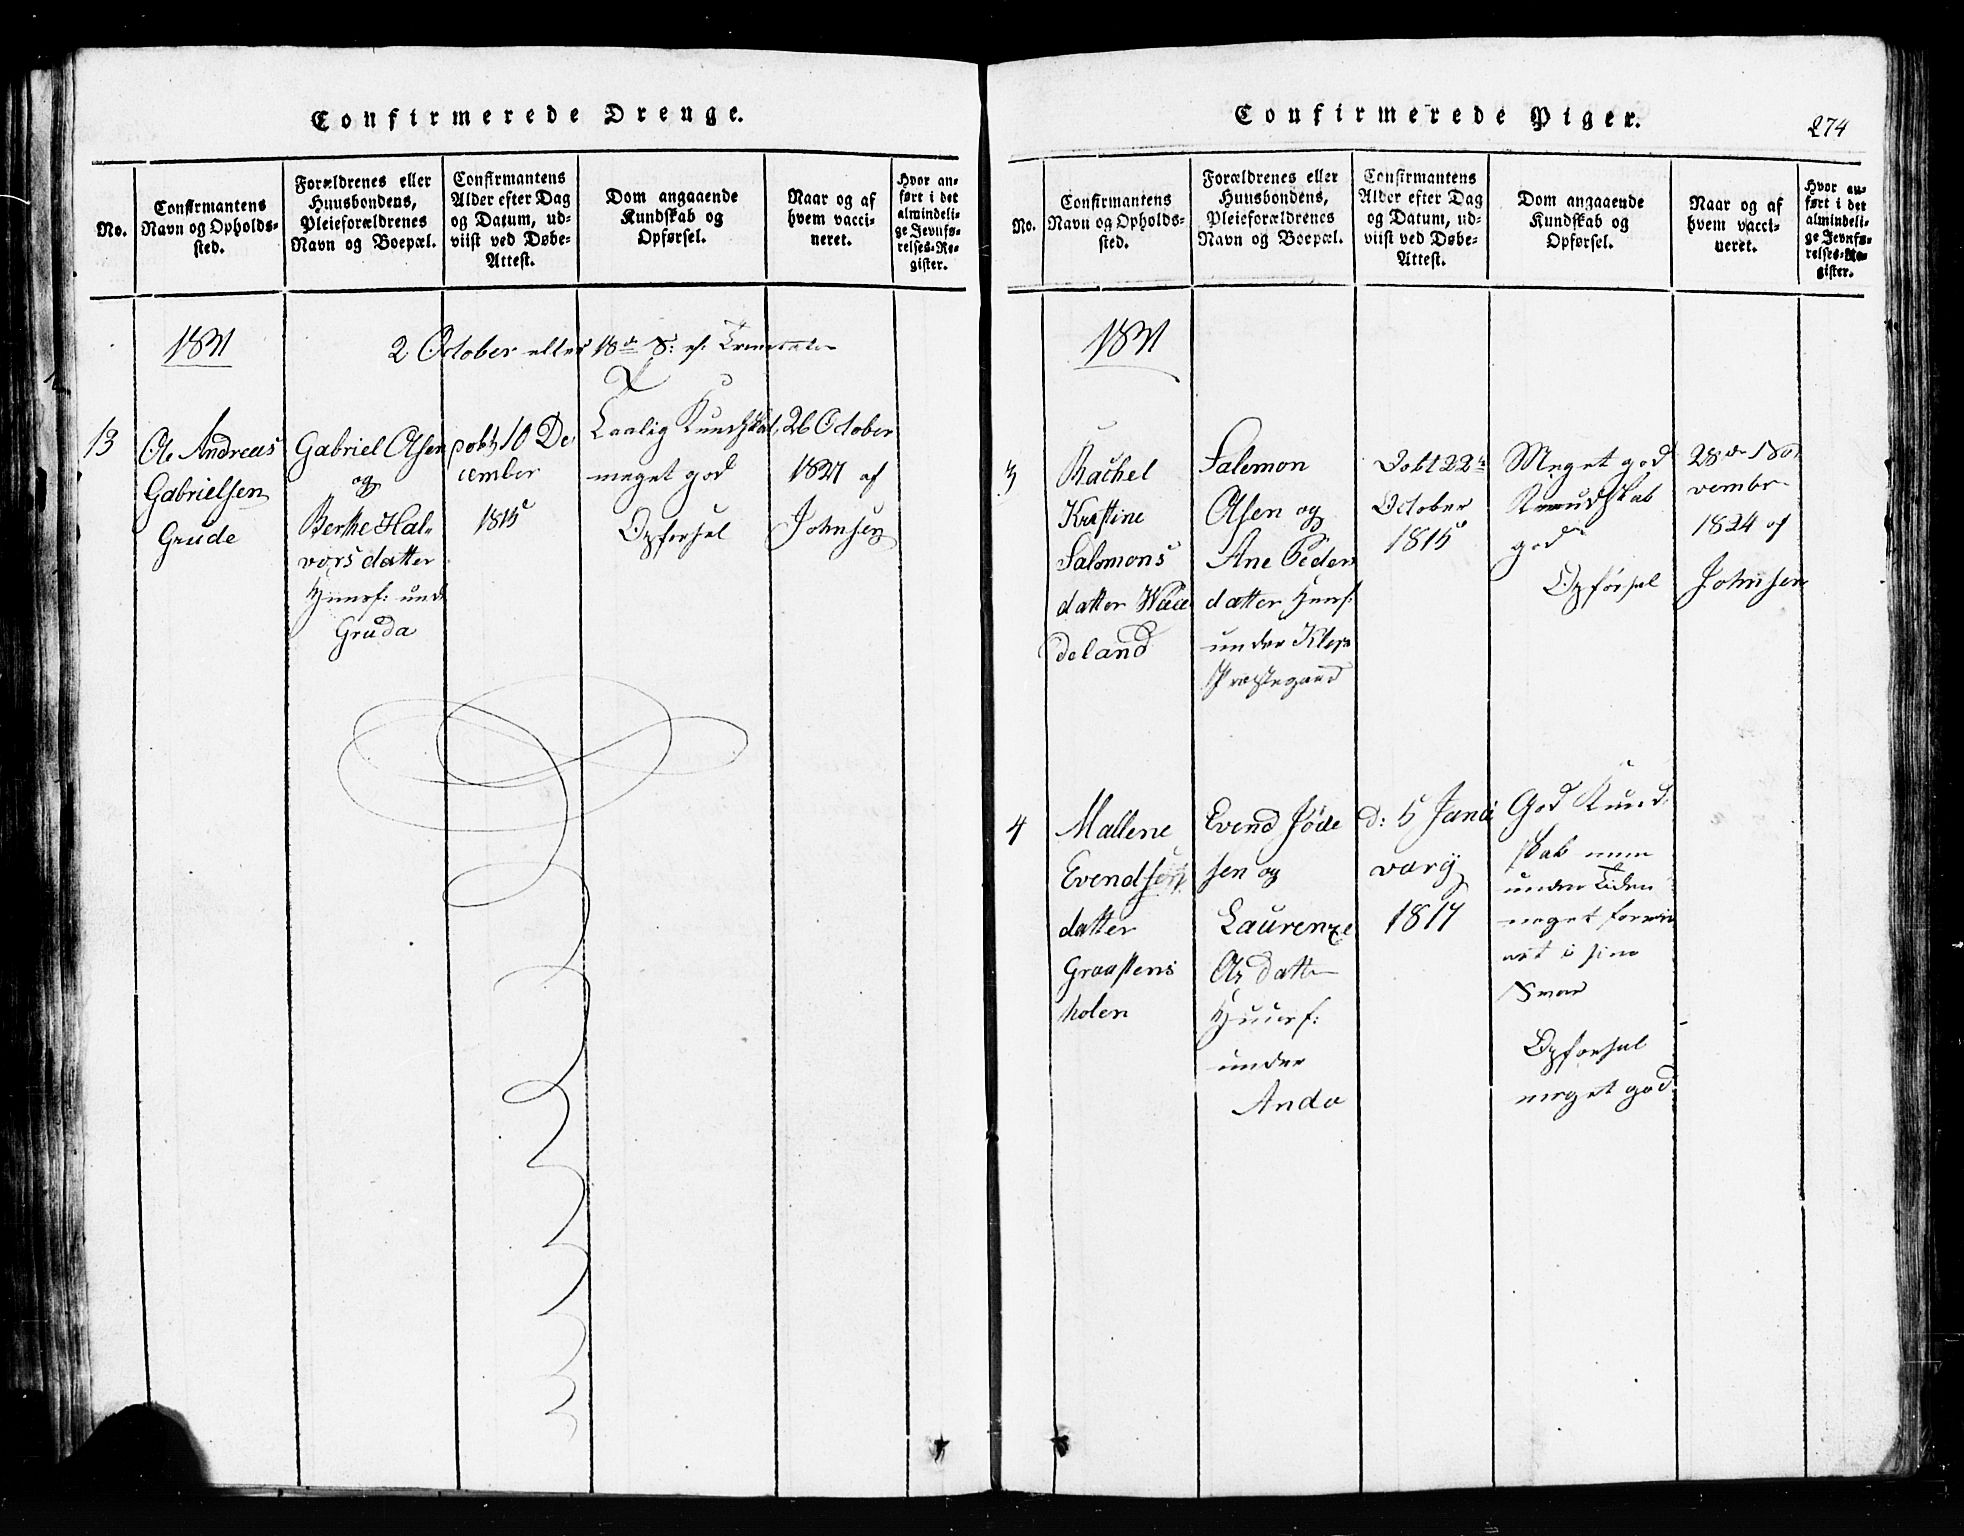 Confirmerede Drenge.
No.
Confirmantens
Navn og Opholds-
sted.
Forældrenes eller
Huusbondens,
Pleieforældrenes
Navn og Boepæl.
Confirmantens
Alder efter Dag
og Datum, ud-
viist ved Døbe-
Attest.
Dom angaaende
Kundskab og
Opførsel.
Naar og af
hvem vacci-
neret.
Hvor an-
ført i det
almindeli-
ge Jevnfø-
relses-Re-
gister.
1831
2 October eller 18de S: ef:
13
Ole Andreas
Gabrielsen
Grude
Gabriel Olsen
og
Berthe Hal-
vorsdatter
Huusf: und
Gruda
10 De
cember
1815
Taalig Kundskab,
meget god
Opførsel
26 October
1827 af
Johnsen
Confirmerede Piger.
274
No.
Confirmantens
Navn og Opholds-
sted.
Forældrenes eller
Huusbondens,
Pleieforældrenes
Navn og Boepæl.
Confirmantens
Alder efter Dag
og Datum, ud-
viist ved Døbe-
Attest.
Dom angaaende
Kundskab og
Opførsel.
Naar og af
hvem vacci-
neret.
Hvor an-
ført i det
almindeli-
ge Jevnfø-
relses-Re-
gister.
1831
3
Rachel
Kristine
Salomons
datter
deland
Salemon
Olsen og
Ane Peders
datter Huusf:
under Klep
Præstegaard
Døbt 22de
October
1815
Meget god
Kundskab
god
Opførsel
28de No
vembr
1824 af
Johnsen
4
Mallene
Evendsen
datter
Graastens
holen
Evend Jøde
sen og
Laurenze
Olsdatter
Huusf:
under
Anda
d: 5 Janu
varij
1817
God Kund
skab men
under Tiden
meget forvir
ret i sine
Svar
Opførsel
meget god